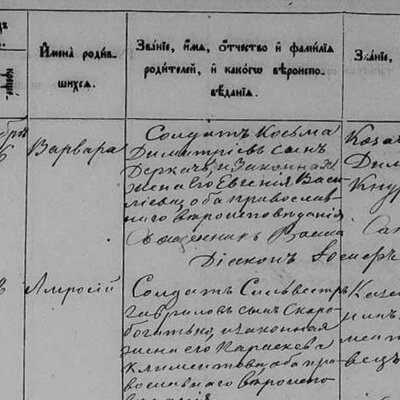 Имена родив-
шихся.
Званіе, имя, отчество и фамилія
родителей, и какого вѣроиспо-
вѣданія.
Званіе,
Варвара
Солдатъ Косьма
Димитріевъ сынъ
Деркачъ, и законная
жена его Евгенія Васи
ліева, оба православ-
наго вѣроисповѣданія
Козач
Дим
Кнур
Священникъ
Діаконъ Іосифъ
Амвросій
Солдатъ Сильвестръ
Гавриловъ сынъ Скоро-
богатько, и законная
жена его Параскева
Климентова, оба пра-
вославнаго вѣроиспо-
вѣданія
Козач
мент
вецъ